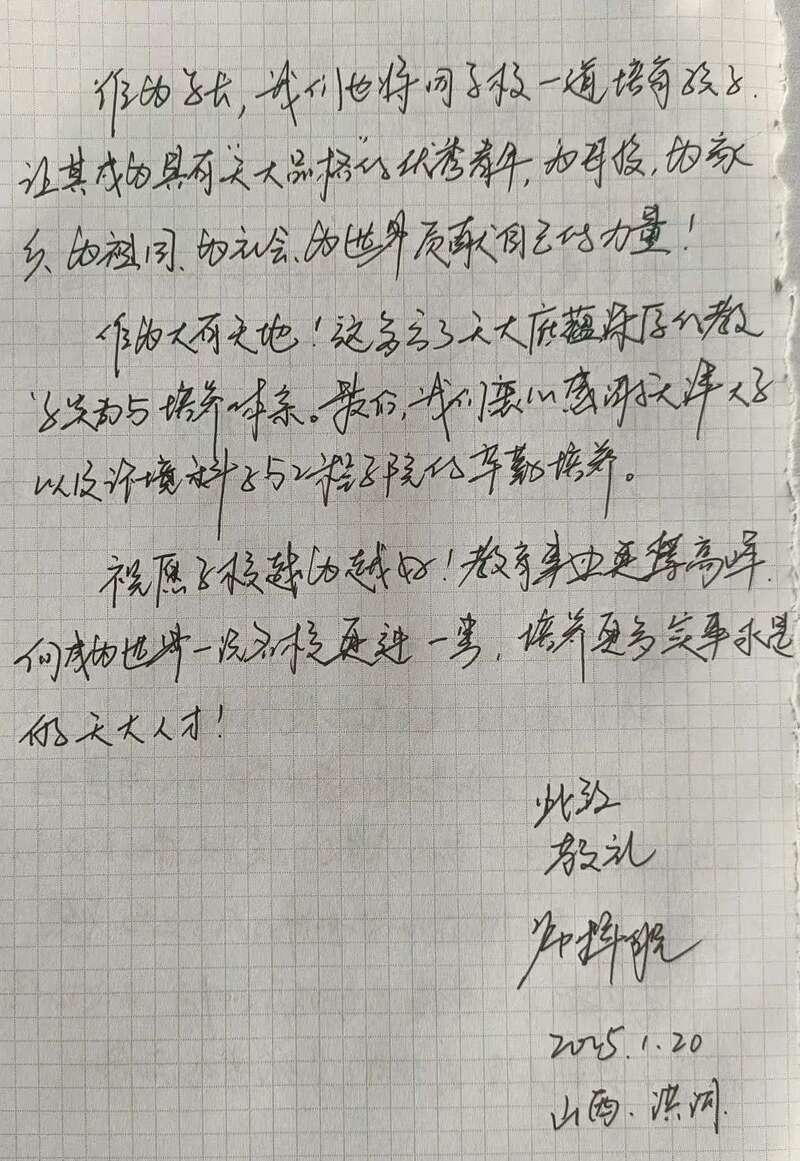 作为家长，我们也将同学校一道培育孩子，
让其成为具有“天大品格”的优秀青年，为母校，为家
乡、为祖国、为社会、为世界贡献自己的力量！
作为大有天地！这多亏了天大底蕴深厚的教
学 与培养体系。最后，我们衷心感谢天津大学
以及环境科学与工程学院的辛勤培养。
祝愿学校越办越好！教育事业更攀高峰，
向成为世界一流名校更进一步，培养更多实事求是
的天大人才！
此致
敬礼
2025.1.20
山西.洪洞.